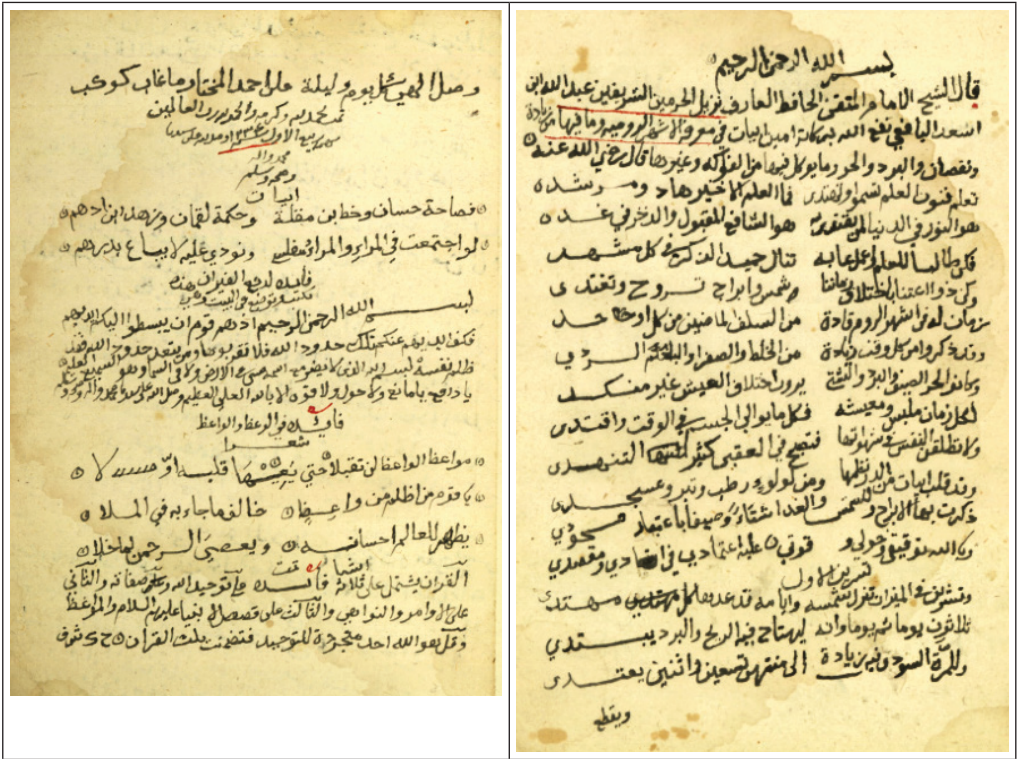 بسم الله الرحمن الرحيم
قال الشيخ الامام المتقن الحافظ العارف نزيل الحرمين الشريفين عبد الله ابن
اسعد اليافعي نفع الله ببركاته امين ابيات في معرفة الاشهر الرومية وما فيها من زيادة
ونقصان والبرد والحر وما يوكل فيها من الفواكه وغيرها قال رضي الله عنه
تعلم فنون العلم تسمو وتهتدى فما العلم الا خير هاد ومرشده
هو النور في الدنيا لمن يقتدى هو الشافع المقبول والذخر في غده
فكن طالبا للعلم تنال حميد الذكر في كل مشهد
وكن ذا اعتنا باختلاف زماننا وشمس وابراج تروح وتغتدى
زمان له في اشهر الروم قادة من السلف الماضين من كل اوحد
وقد ذكروا من كل وقت زيادة من الخلط والصفرا والبلغم الردي
وكانو الحر الصيف والبرد والشتا يرون اختلاف العيش غير منكد
لكل زمان ملبس ومعيشه فكل ما يوالي الجسم في الوقت واقتدى
ولا تطلقن النفس في شهواتها فتبع في العقبى كثير التنهدى
ومن لولو رطب وتبر وعسجدى
ذكرت بها الابراج والشمس
وبالله توفيقي وحولي وقوتي عليه اعتمادي في ومقصدي
تشرين الاول
وتشرين في الميزان تغرل شمسه وايامه قد عدها كل مهتد
ثلاثون يوما ثم يوما وانه يهتاج فيه الريح والبرد يبتدي
وللمرة السودى فيه زيادة الى منتهى تسعين واثنين يعتدى
ويقطع
وصل الهي كل يوم وليلة على احمد المختار ما غاب كوكب
تمت بحمد الله وكرمه والحمد لله رب العالمين
ربيع الاول
محمد واله
وصحبه وسلم
ابيات
فصاحة حسان وخط ابن مقلة وحكمة لقمان وزهد ابن ادهم
لو اجتمعت في المراء والمراء مفلس ونودي عليه لا يباع بدرهم
فايده لدفع الفيران هذه
تكتب وتوضع في البيت وهي
بسم الله الرحمن الرحيم اذ هم قوم ان يبسطوا اليكم ايديهم
فكف ايديهم عنكم تلك حدود الله فلا تقربوها ومن يتعد حدود الله فقد
ظلم نفسه بسم الله الذي لا يضر مع اسمه شي في الارض ولا في السما وهو السميع العليم
يا دافع يا مانع ولا حول ولا قوة الا بالله العلي العظيم وصلى الله على سيدنا محمد واله وصحبه وسلم
فايده في الوعظ والواعظ
شعرا
مواعظ الواعظ لن تقبلا حتى يعيها قلبه اولا
يا قوم من اظلم من واعظ خالف ما جاء به في الملا
يظهر للعالم احسانه ويعصي الرحمن لما خلا
تمت
فايده القران يشتمل على ثلاثة اشيا توحيد الله وذكر صفاته والثاني
على الاوامر والنواهي والثالث على قصص الانبيا عليهم السلام والمواعظ
وقل هو الله احد متجردة للتوحيد فتضمنت ثلث القران